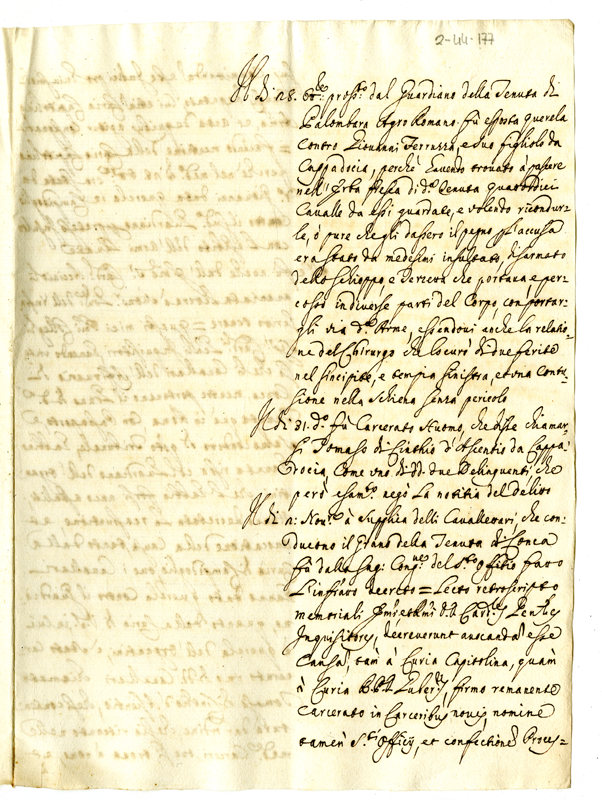 2-44-177
Il dì 28. 8bre. pross.o dal Guardiano della Tenuta di
Palombara Agro Romano fù esposta querela
contro Giovanni Terrazza, e due figliolo da
Cappadocia, perche havendo trovato à pascere
nell'Erba stessa di d.a Tenuta quattordici
Cavalle da essi guardate, e volendo ricondur=
le, ò pure che gli dassero il pegno p l'accusa
era stato da medesimi insultato, disarmato
dello schioppo e Terzetta che portava e per=
cosso in diverse parti del Corpo, con portar=
gli via d.e Arme, essendovi anche la relatio=
ne del Chirurgo che lo curò di due ferite
nel sincipite, e tempia sinistra, et una Contu=
sione nella schiena senza pericolo
Il dì 31. d.o fù Carcerato Huomo, che disse chiamar=
si Tomaso di Cinthio d'Ascentio da Cappa=
docia, Come uno di dd. due Delinquenti, che
però esam.to negò la notitia del Delitto
Il dì 2: Nov.re à supplica delli Cavallerari, che con=
ducono il grano della Tenuta di Conca
fù dalla Sag: Cong.ne del S.to Offitio fatto
l'infratto decreto = Lecto retroscripto
memoriali Eminentissimi DD Card.les
Inquisitores, decreverunt avocandã esse
Causã, tam à Curia Capitolina, quam
à Curia firmo remanente
Carcerato in Carceribus novis nomine
tamen S.ti Officij, et confectione Proces=